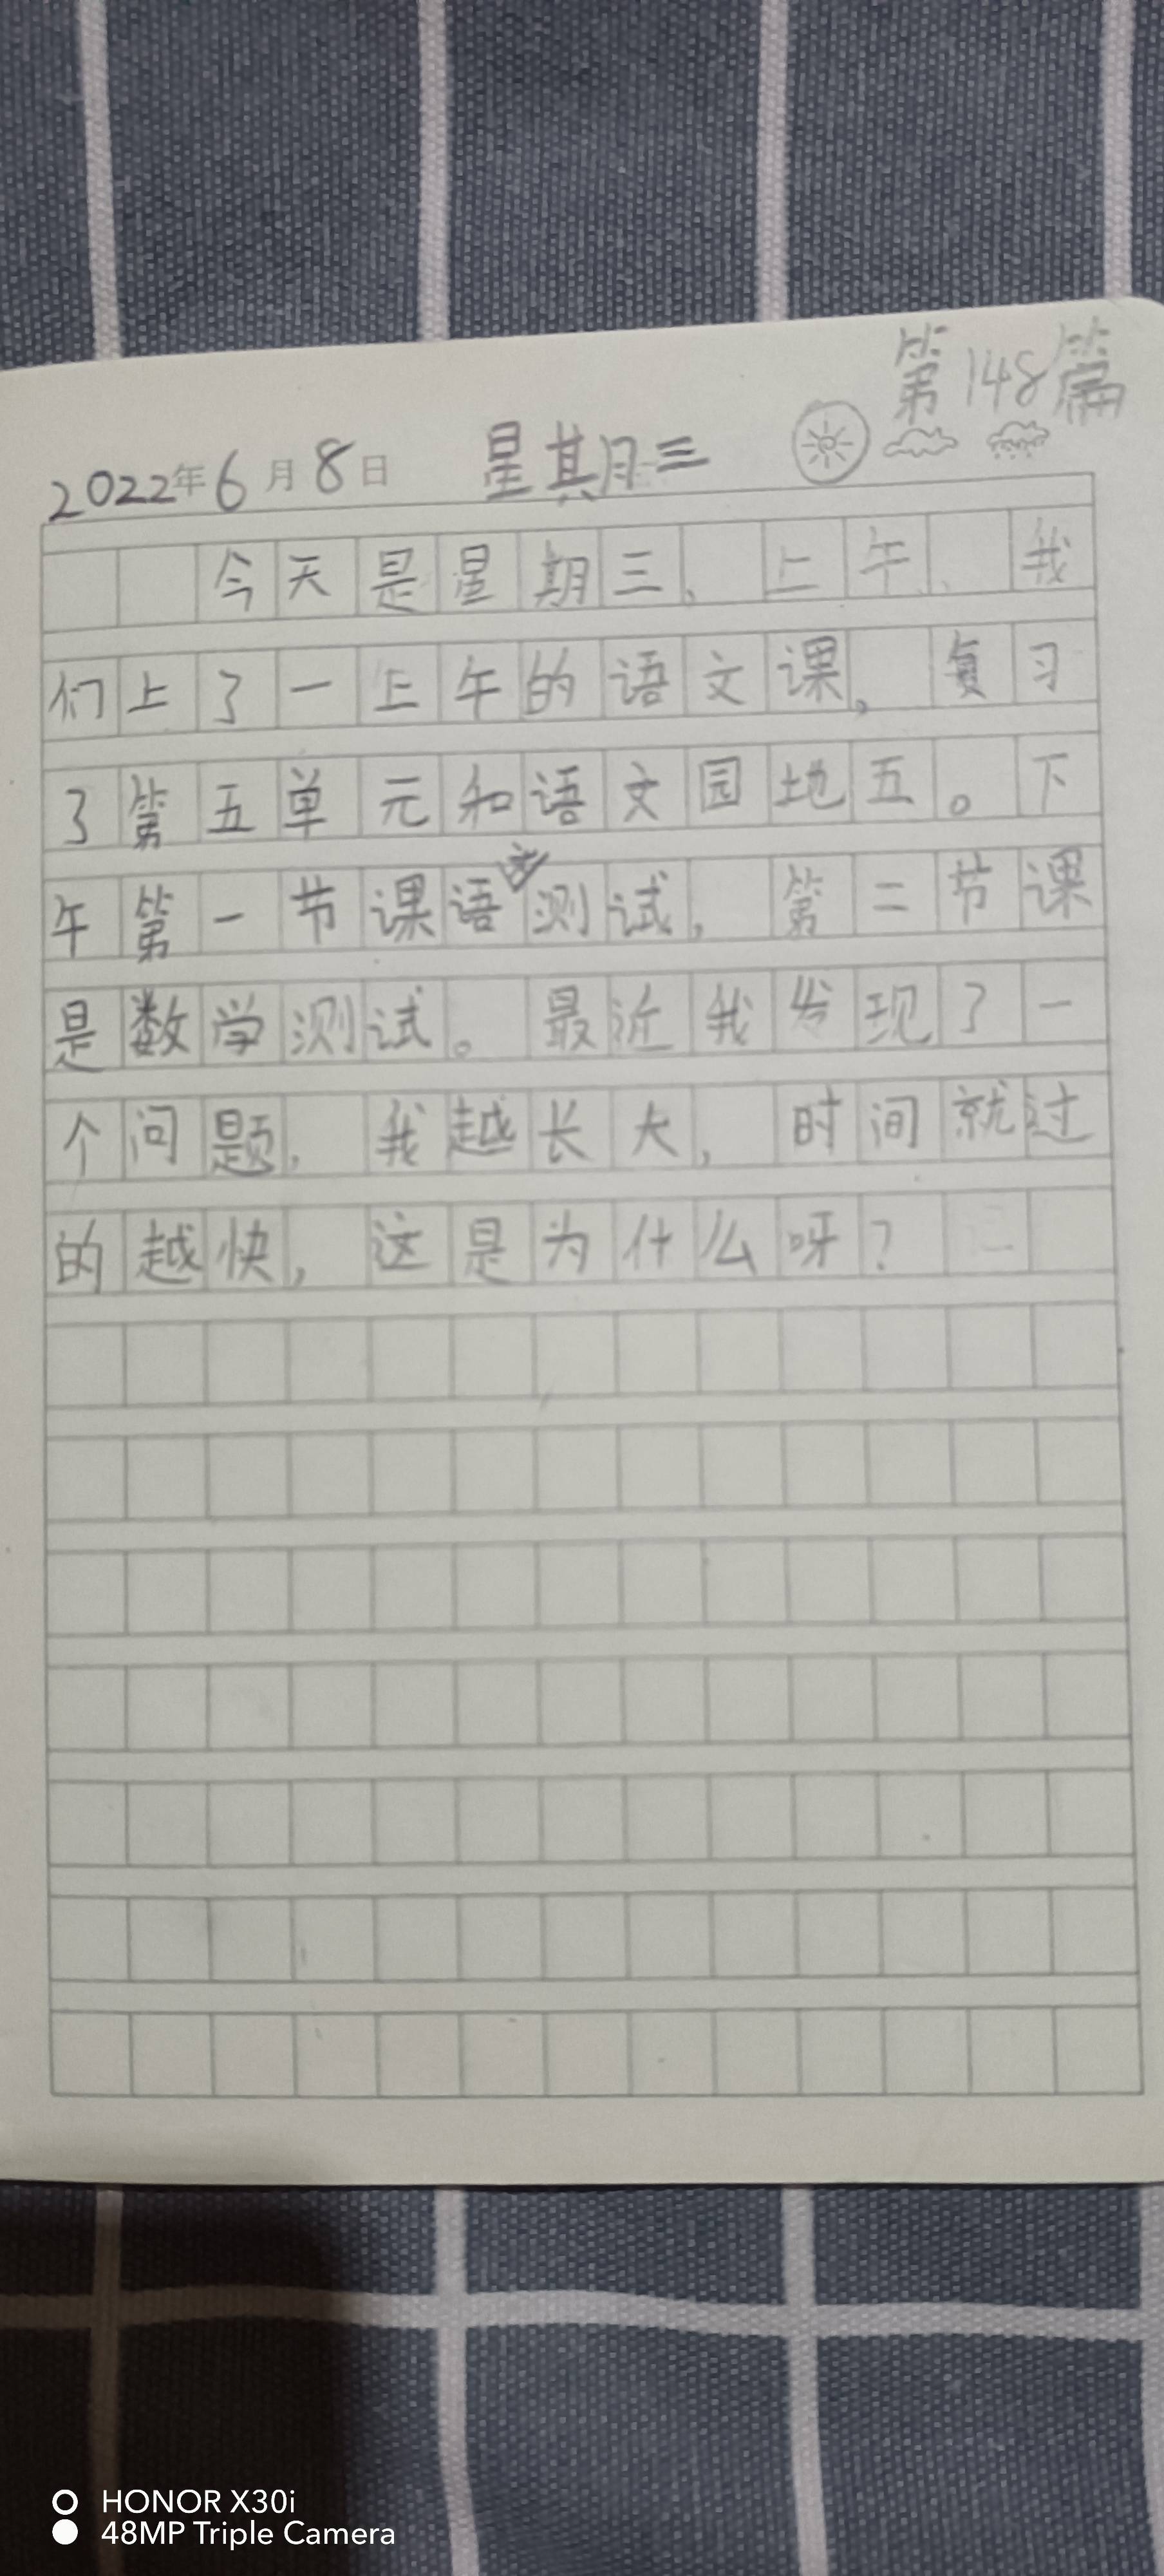 第148篇
2022年6月8日 星期三
今天是星期三、上午、我
们上了一上午的语文课，复习
了第五单元和语文园地五。下
午第一节课语文测试，第二节课
是数学测试。最近我发现了一
个问题，我越长大，时间就过
的越快，这是为什么呀？
HONOR X30i
48MP Triple Camera